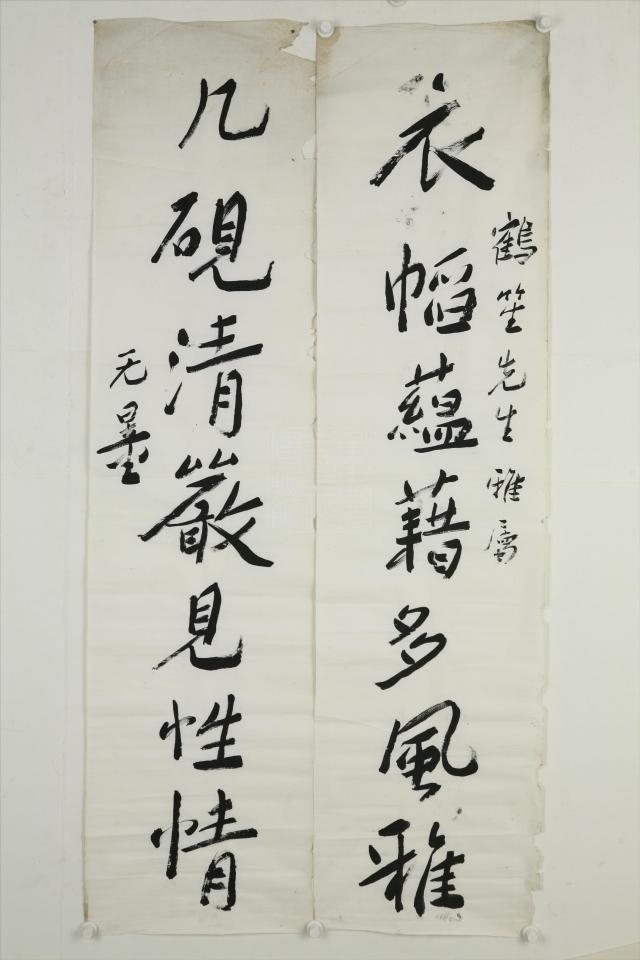 鶴笙先生雅屬
衣幍蘊藉多風雅
几硯清嚴見性情
无量